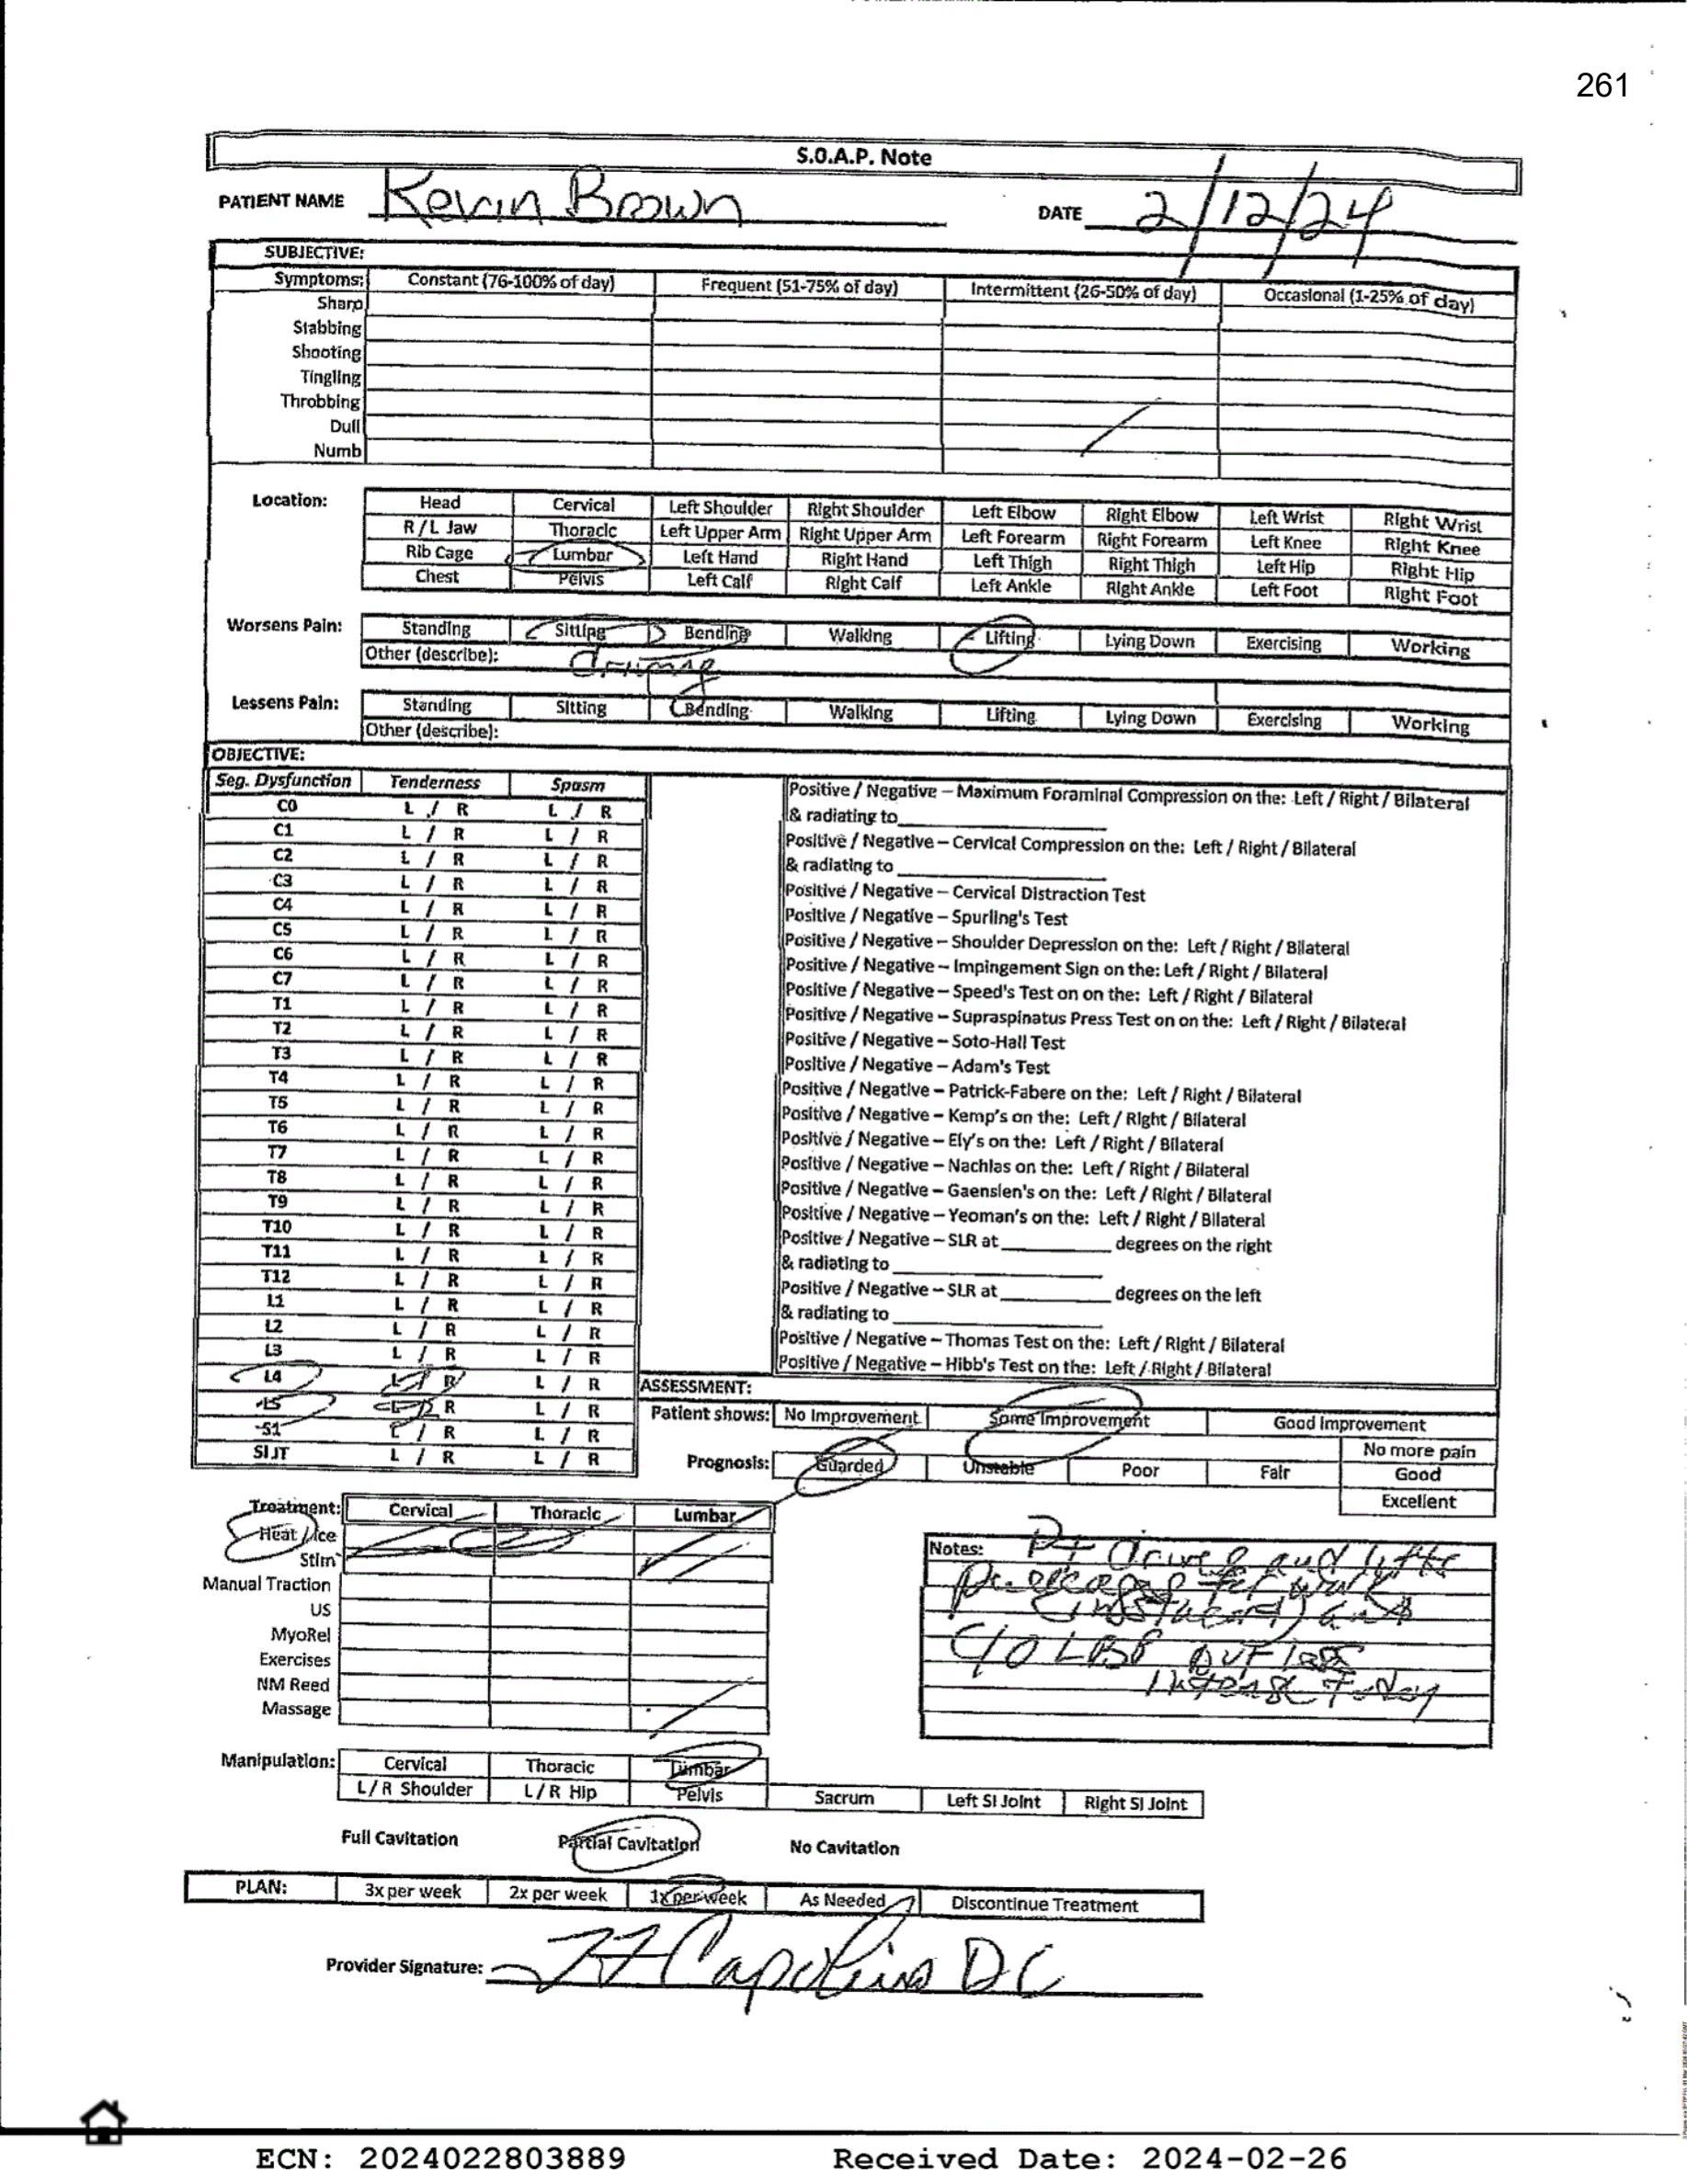 261
S.O.A.P. Note
PATIENT NAME Kevin Brown DATE 2/12/24
SUBJECTIVE:
Symptoms: Constant (76-100% of day) Frequent (51-75% of day) Intermittent (26-50% of day) Occasional (1-25% of day)
Sharp
Stabbing
Shooting
Tingling
Throbbing
Dull
Numb
Location: Head Cervical Left Shoulder Right Shoulder Left Elbow Right Elbow Left Wrist Right Wrist
R / L Jaw Thoracic Left Upper Arm Right Upper Arm Left Forearm Right Forearm Left Knee Right Knee
Rib Cage Lumbar Left Hand Right Hand Left Thigh Right Thigh Left Hip Right Hip
Chest Pelvis Left Calf Right Calf Left Ankle Right Ankle Left Foot Right Foot
Worsens Pain: Standing Sitting Bending Walking Lifting Lying Down Exercising Working
Other (describe): driving
Lessens Pain: Standing Sitting Bending Walking Lifting Lying Down Exercising Working
Other (describe):
OBJECTIVE:
Seg. Dysfunction Tenderness Spasm
C0 L / R L / R
C1 L / R L / R
C2 L / R L / R
C3 L / R L / R
C4 L / R L / R
C5 L / R L / R
C6 L / R L / R
C7 L / R L / R
T1 L / R L / R
T2 L / R L / R
T3 L / R L / R
T4 L / R L / R
T5 L / R L / R
T6 L / R L / R
T7 L / R L / R
T8 L / R L / R
T9 L / R L / R
T10 L / R L / R
T11 L / R L / R
T12 L / R L / R
L1 L / R L / R
L2 L / R L / R
L3 L / R L / R
L4 L / R L / R
L5 L / R L / R
S1 L / R L / R
SI JT L / R L / R
Positive / Negative – Maximum Foraminal Compression on the: Left / Right / Bilateral
& radiating to
Positive / Negative – Cervical Compression on the: Left / Right / Bilateral
& radiating to
Positive / Negative – Cervical Distraction Test
Positive / Negative – Spurling's Test
Positive / Negative – Shoulder Depression on the: Left / Right / Bilateral
Positive / Negative – Impingement Sign on the: Left / Right / Bilateral
Positive / Negative – Speed's Test on on the: Left / Right / Bilateral
Positive / Negative – Supraspinatus Press Test on on the: Left / Right / Bilateral
Positive / Negative – Soto-Hall Test
Positive / Negative – Adam's Test
Positive / Negative – Patrick-Fabere on the: Left / Right / Bilateral
Positive / Negative – Kemp's on the: Left / Right / Bilateral
Positive / Negative – Ely's on the: Left / Right / Bilateral
Positive / Negative – Nachlas on the: Left / Right / Bilateral
Positive / Negative – Gaenslen's on the: Left / Right / Bilateral
Positive / Negative – Yeoman's on the: Left / Right / Bilateral
Positive / Negative – SLR at degrees on the right
& radiating to
Positive / Negative – SLR at degrees on the left
& radiating to
Positive / Negative – Thomas Test on the: Left / Right / Bilateral
Positive / Negative – Hibb's Test on the: Left / Right / Bilateral
ASSESSMENT:
Patient shows: No Improvement Some Improvement Good Improvement
No more pain
Prognosis: Guarded Unstable Poor Fair Good
Excellent
Treatment: Cervical Thoracic Lumbar
Heat / Ice
Stim
Manual Traction
US
MyoRel
Exercises
NM Reed
Massage
Notes: Pt drives and lifts
for work
and
C/O LBP but less
intense today
Manipulation: Cervical Thoracic Lumbar
L / R Shoulder L / R Hip Pelvis Sacrum Left SI Joint Right SI Joint
Full Cavitation Partial Cavitation No Cavitation
PLAN: 3x per week 2x per week 1x per week As Needed Discontinue Treatment
Provider Signature: DC
ECN: 2024022803889 Received Date: 2024-02-26